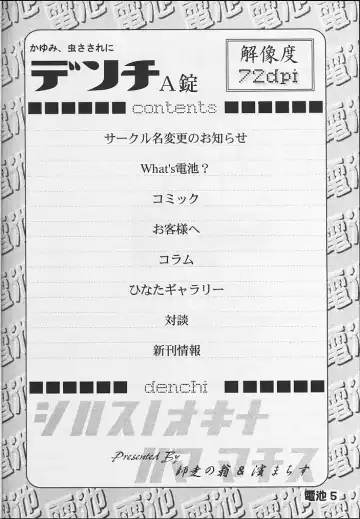 かゆみ、虫さされに
デンチA錠
解像度
72dpi
contents
サークル名変更のお知らせ
What's電池？
コミック
お客様へ
コラム
ひなたギャラリー
対談
新刊情報
denchi
シハスノオキナ
ハマ マラス
Presented By
師走の翁 & 濱まらす
電池 5